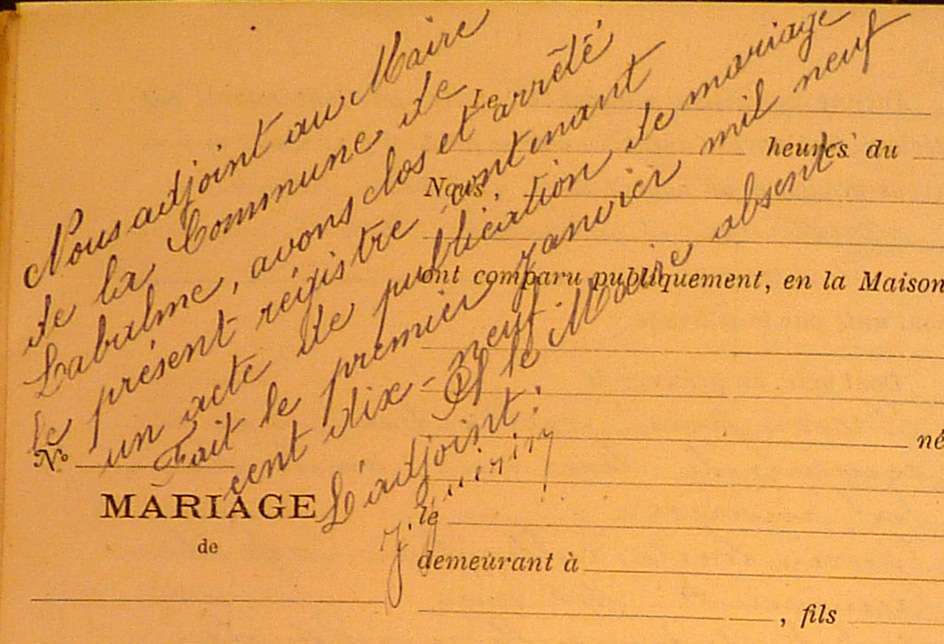 Nous adjoint au Maire
de la Commune de
Labalme, avons clos et arrêté
le présent régistre contenant
un acte de publication de mariage
Fait le premier Janvier mil neuf
cent dix-neuf
Pr le Maire absent
L'adjoint:
Le
heures du
Nous,
ont comparu publiquement, en la Maison
né
le
demeurant à
, fils
No
MARIAGE
de